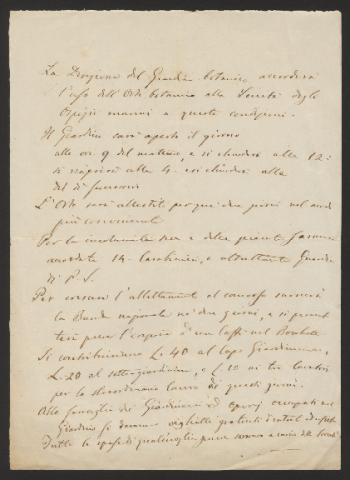 La Direzione del Giardino botanico accorderà
l'uso dell'Orto botanico alla Società degli
Ospizi marini a queste condizioni.
Il Giardino sarà aperto il giorno
alle ore 9 del mattino, e si chiuderà alle 12:
si riaprirà alle 4. e si chiuderà alla
del dì
L'Orto sarà allestito per que' due giorni nel modo
più conveniente
Per la incolumità sua e delle piante saranno
accordate 14 Carabinieri, e altrettante Guardie
di P. S.
Per crescere l'allettamento al concorso suonerà
la Banda nazionale ne' due giorni, e si
pure l'aprire di un Caffè nel Boschetto
Si contribuiranno L. 40 al Capo Giardiniere,
L. 20 al sotto-giardiniere, e L. 10 ai tre
per lo straordinario lavoro di questi giorni.
Alle famiglie dei Giardinieri ed operaj occupati nel
Giardino si daranno viglietti gratuiti d'entrata
Tutte le spese di qualsivoglia genere saranno a carico della Società